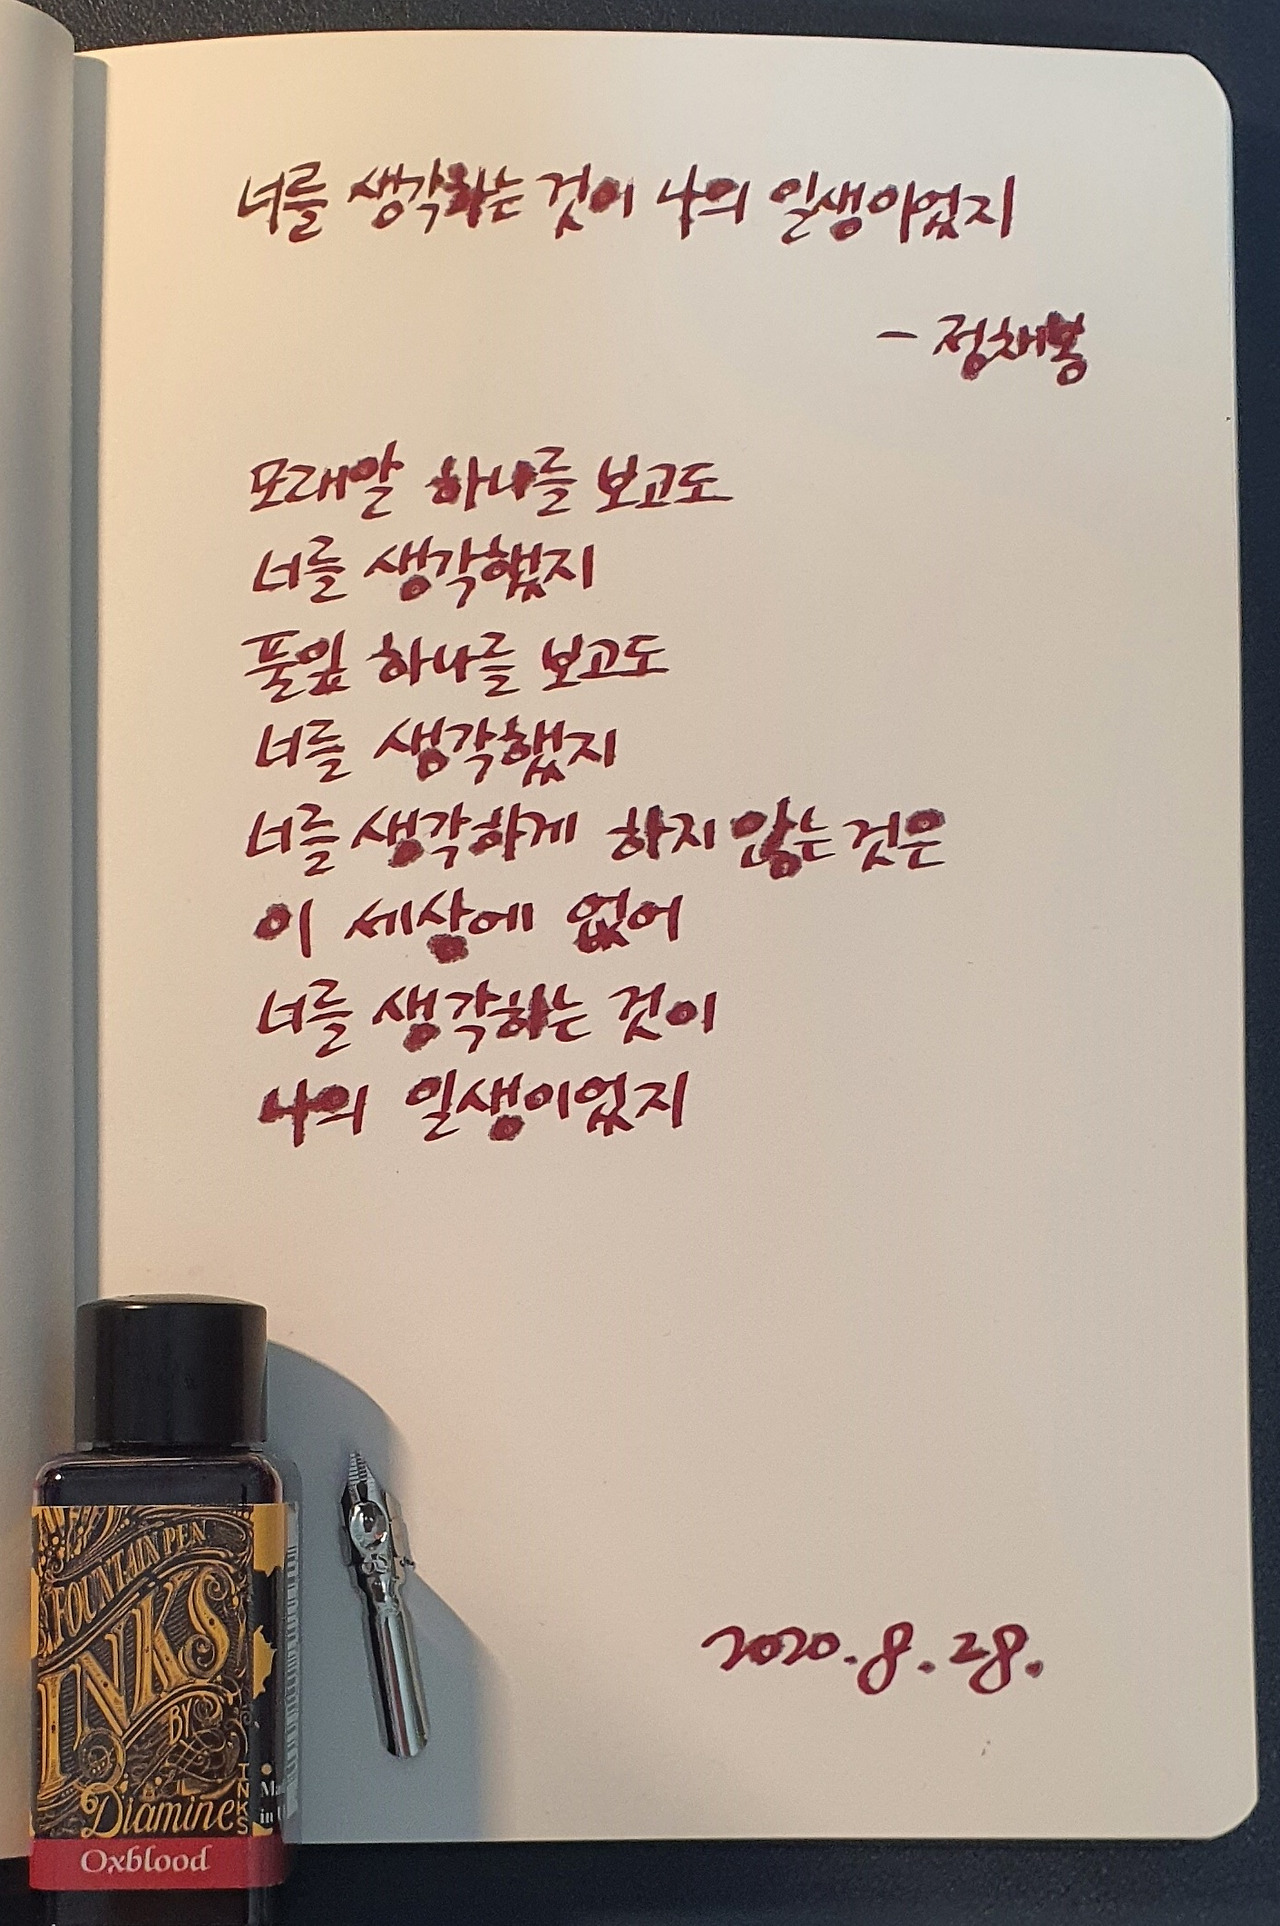 너를 생각하는 것이 나의 일생이었지
- 정채봉
모래알 하나를 보고도
너를 생각했지
풀잎 하나를 보고도
너를 생각했지
너를 생각하게 하지 않는 것은
이 세상에 없어
너를 생각하는 것이
나의 일생이었지
2020.8.28.
FOUNTAIN PEN
INKS
BY
Diamine
Oxblood
INKS